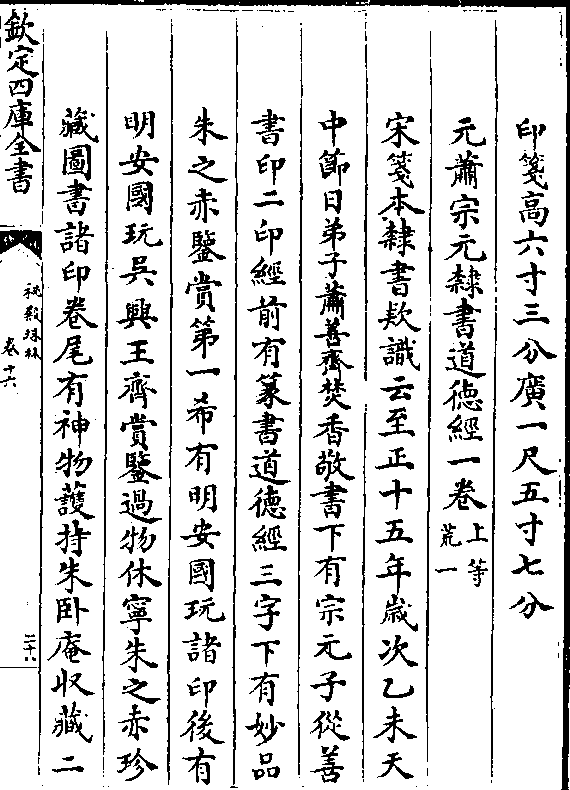 印箋高六寸三分廣一尺五寸七分
元蕭宗元隸書道徳經一卷上等荒一
宋箋本隸書欵識云至正十五年嵗次乙未天
中節日弟子蕭善齊焚香敬書下有宗元子從善
書印二印經前有篆書道徳經三字下有妙品
朱之赤鑒賞第一希有明安國玩諸印後有
明安國玩吳興王齊賞鑒過物休寧朱之赤珍
藏圖書諸印卷尾有神物䕶持朱卧庵収藏二
欽定四庫全書
秘殿珠林
卷十六
二十六